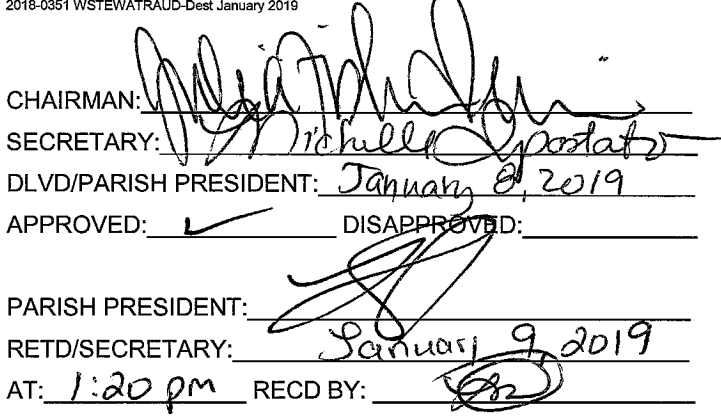 2018-0351 WSTEWATRAUD-Dest January 2019
CHAIRMAN:
SECRETARY: Michelle
DLVD/PARISH PRESIDENT: January 8, 2019
APPROVED: ✓ DISAPPROVED:
PARISH PRESIDENT:
RETD/SECRETARY: January 9, 2019
AT: 1:20 pm RECD BY: